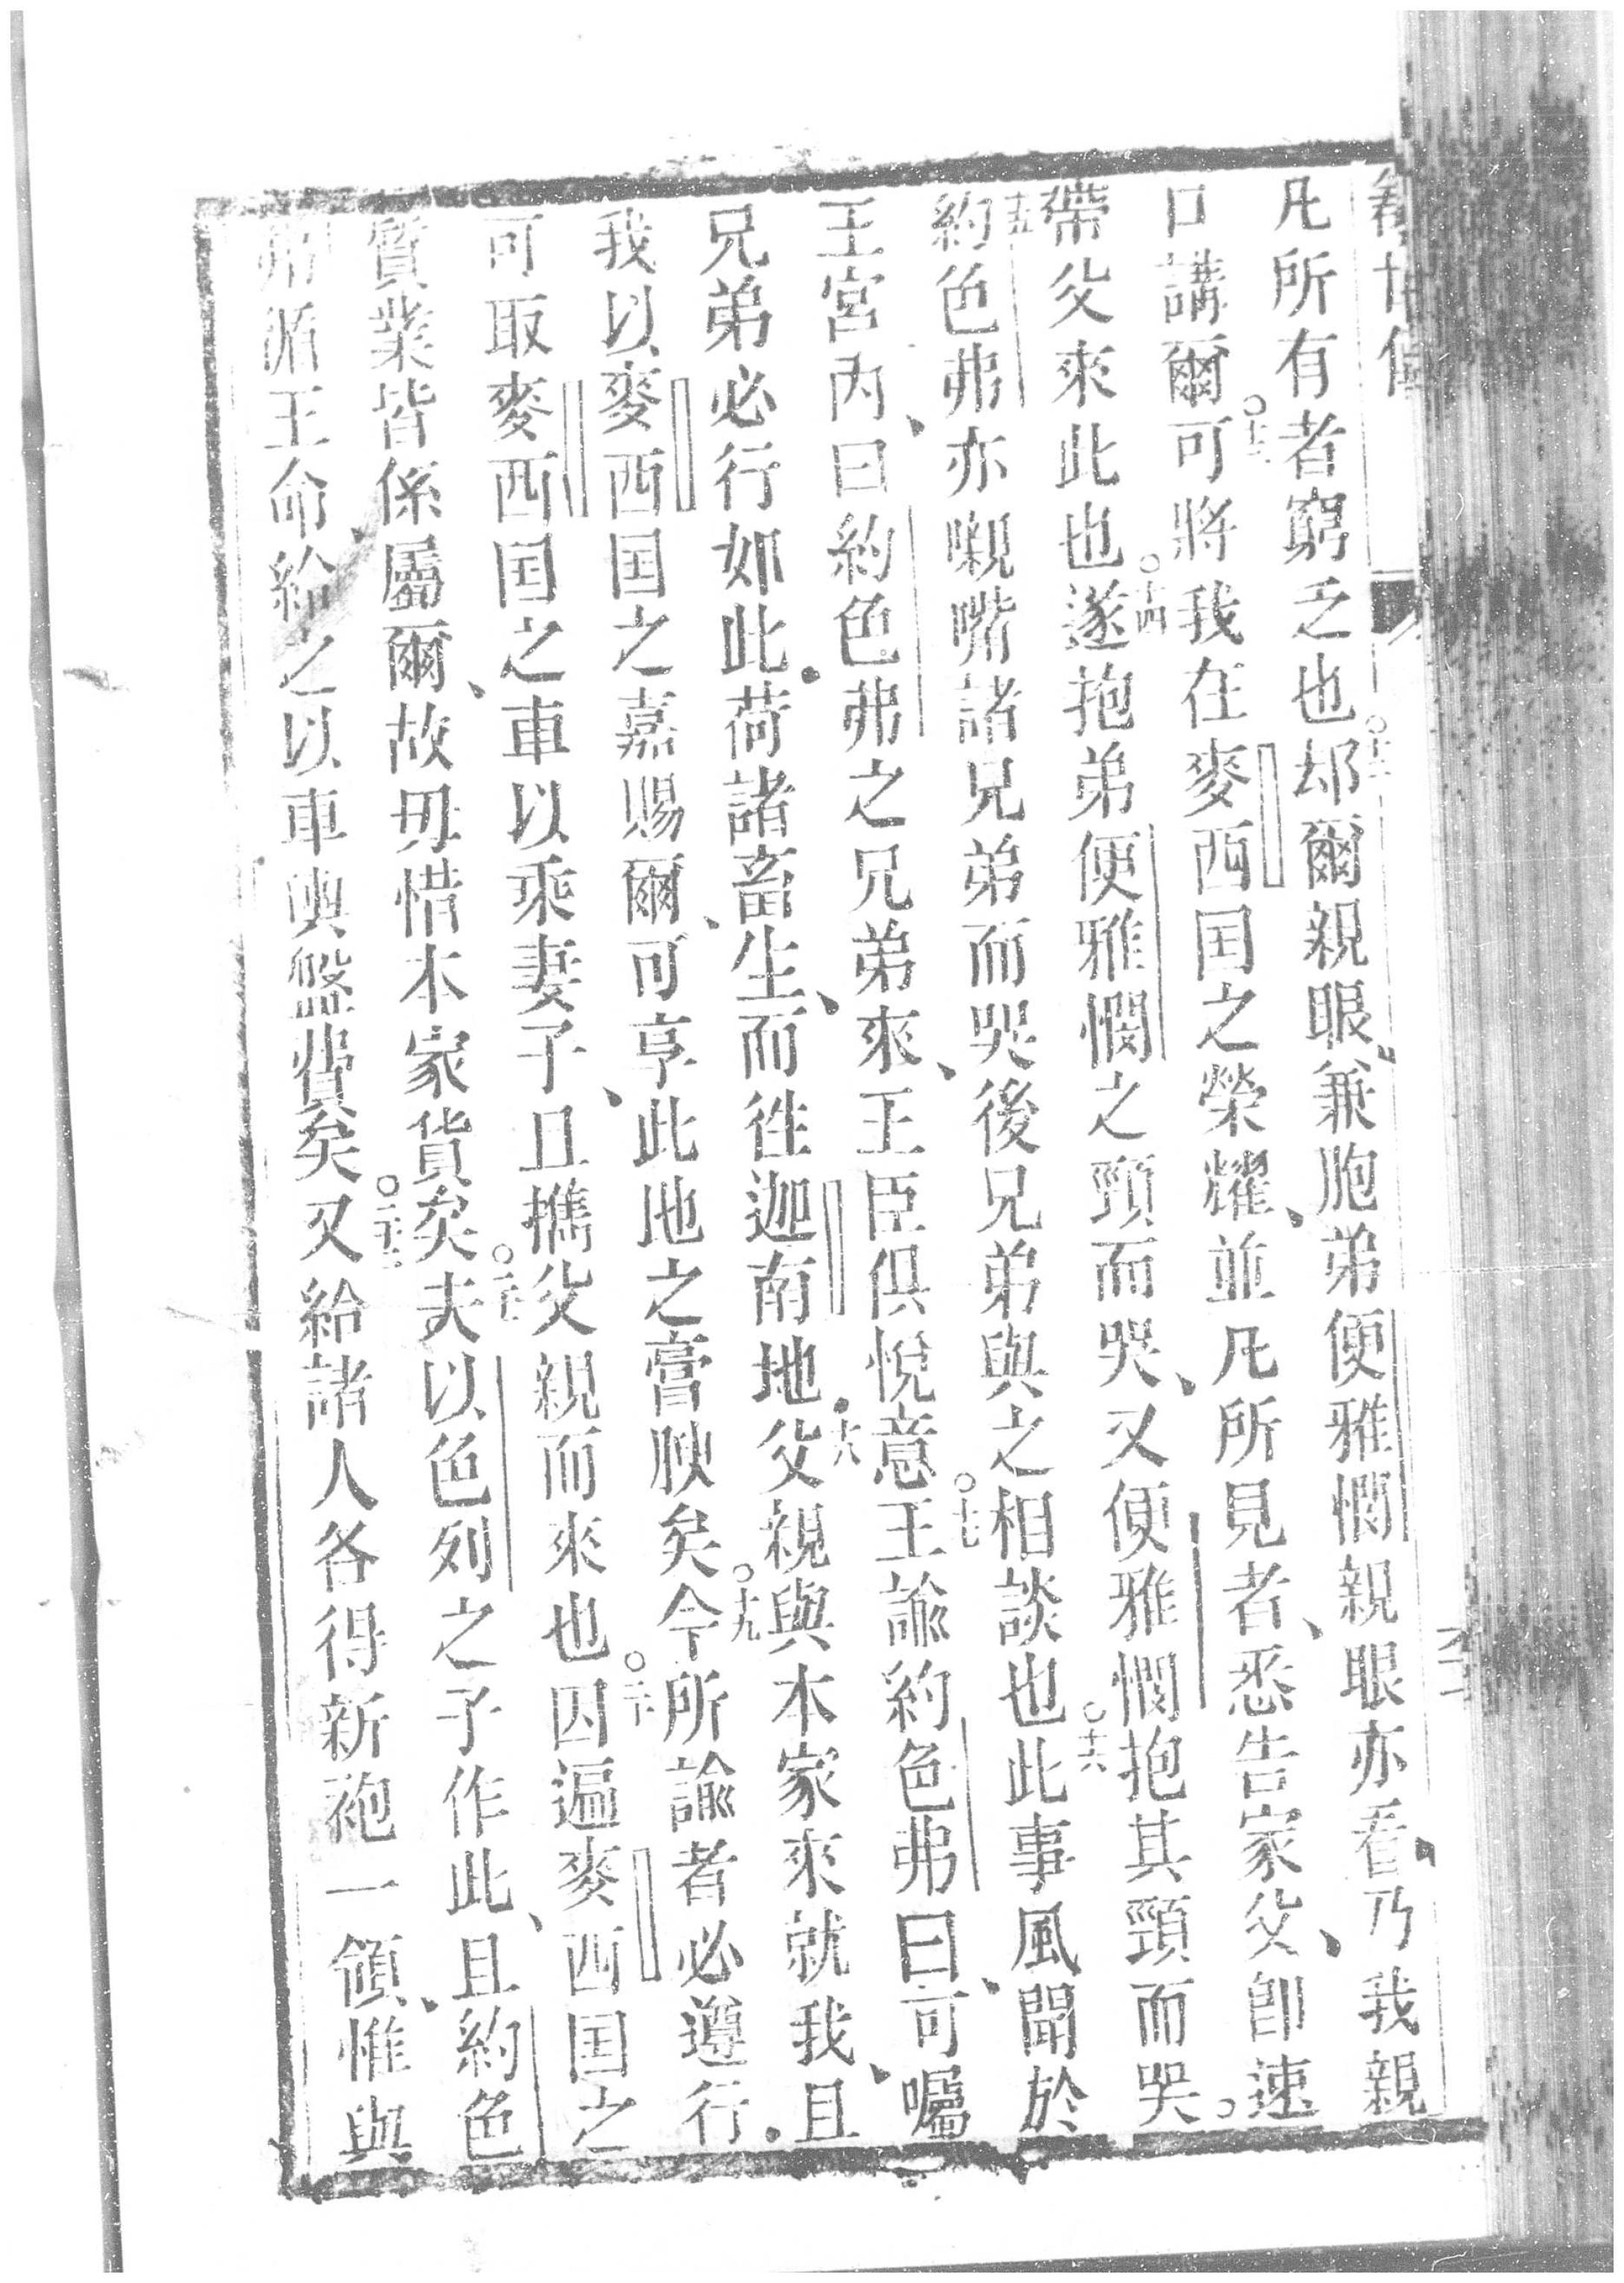 凡所有者窮乏也○十二却爾親眼兼胞弟便雅憫親眼亦看乃我親
口講爾○十三可將我在麥西国之榮耀並凡所見者悉告家父卽速
帶父來此也○十四遂抱弟便雅憫之頸而哭又便雅憫抱其頸而哭
十五約色弗亦嚫嘴諸兄弟而哭後兄弟與之相談也○十六此事風聞於
王宮內曰約色弗之兄弟來王臣俱悅意○十七王諭約色弗曰可囑
兄弟必行如此荷諸畜生而徃迦南地○十八父親與本家來就我且
我以麥西国之嘉賜爾可享此地之膏腴矣○十九今所諭者必遵行
可取麥西国之車以乘妻子且攜父親而來也○二十因遍麥西国之
質業皆係屬爾故毋惜本家貨矣○二十一夫以色列之子作此且約色
弗循王命給之以車輿盤費矣○二十二又給諸人各得新袍一領惟與